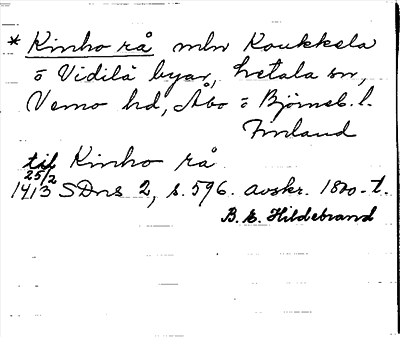 * Kinho rå mln Koukkela
o Vidilä byar, Letala sn,
Vemo hd, Åbo o Björneb. l.
Finland
til Kinho rå
25/2
1413 SDns 2, s. 596. avskr. 1800-t.
B. E. Hildebrand